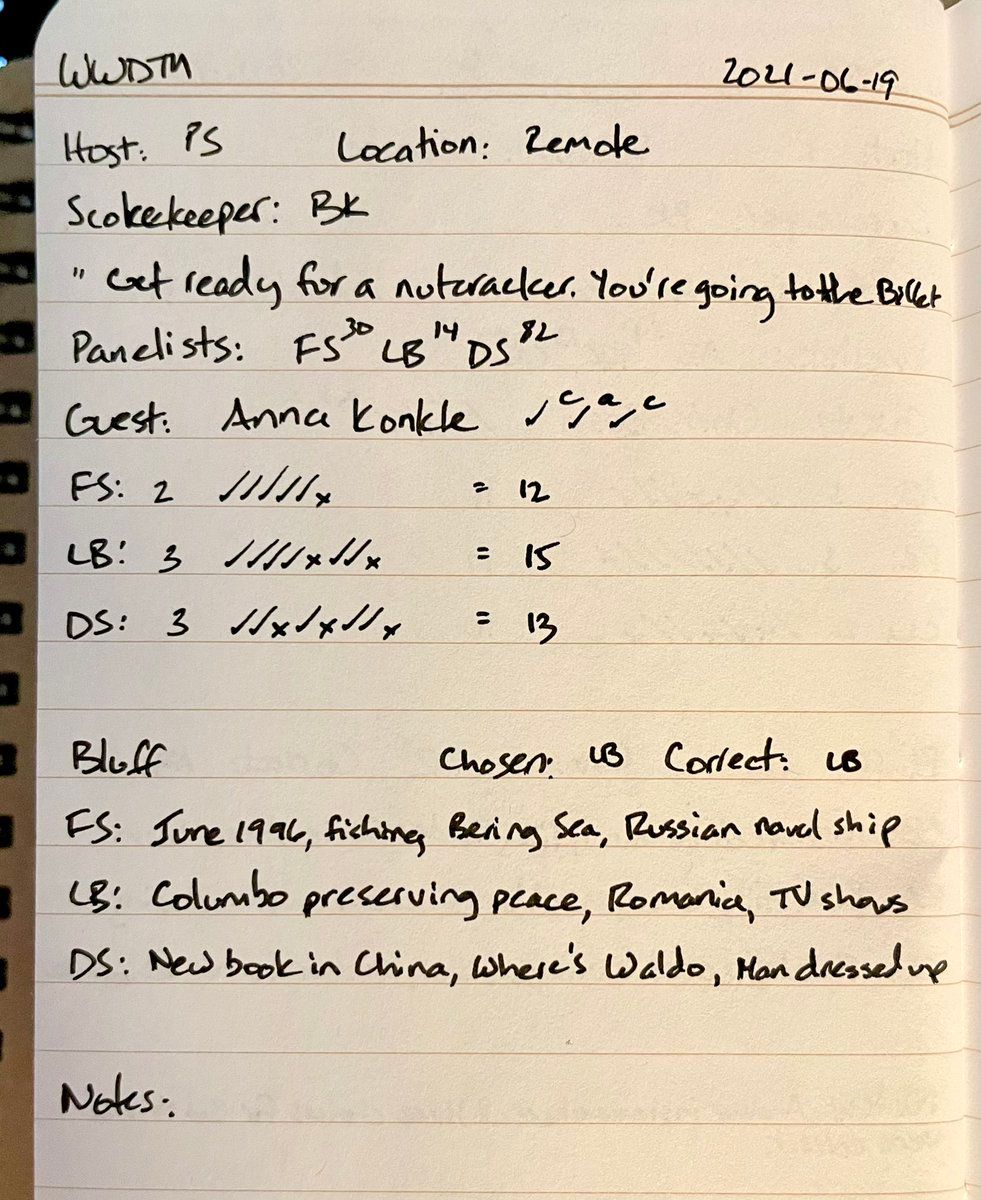 WWDTM 2021-06-19
Host: PS Location: Remote
Scokekeeper: BK
" Get ready for a nutcracker. You're going to the Billet
Panelists: FS 30 LB 14 DS 82
Guest: Anna Konkle ✓ c, a, c
FS: 2 ✓✓✓✓✓x = 12
LB: 3 ✓✓✓✓x✓✓x = 15
DS: 3 ✓✓x✓x✓✓x = 13
Bluff Chosen: LB Correct: LB
FS: June 1996, fishing, Bering Sea, Russian naval ship
LB: Columbo preserving peace, Romania, TV shows
DS: New book in China, Where's Waldo, Man dressed up
Notes: